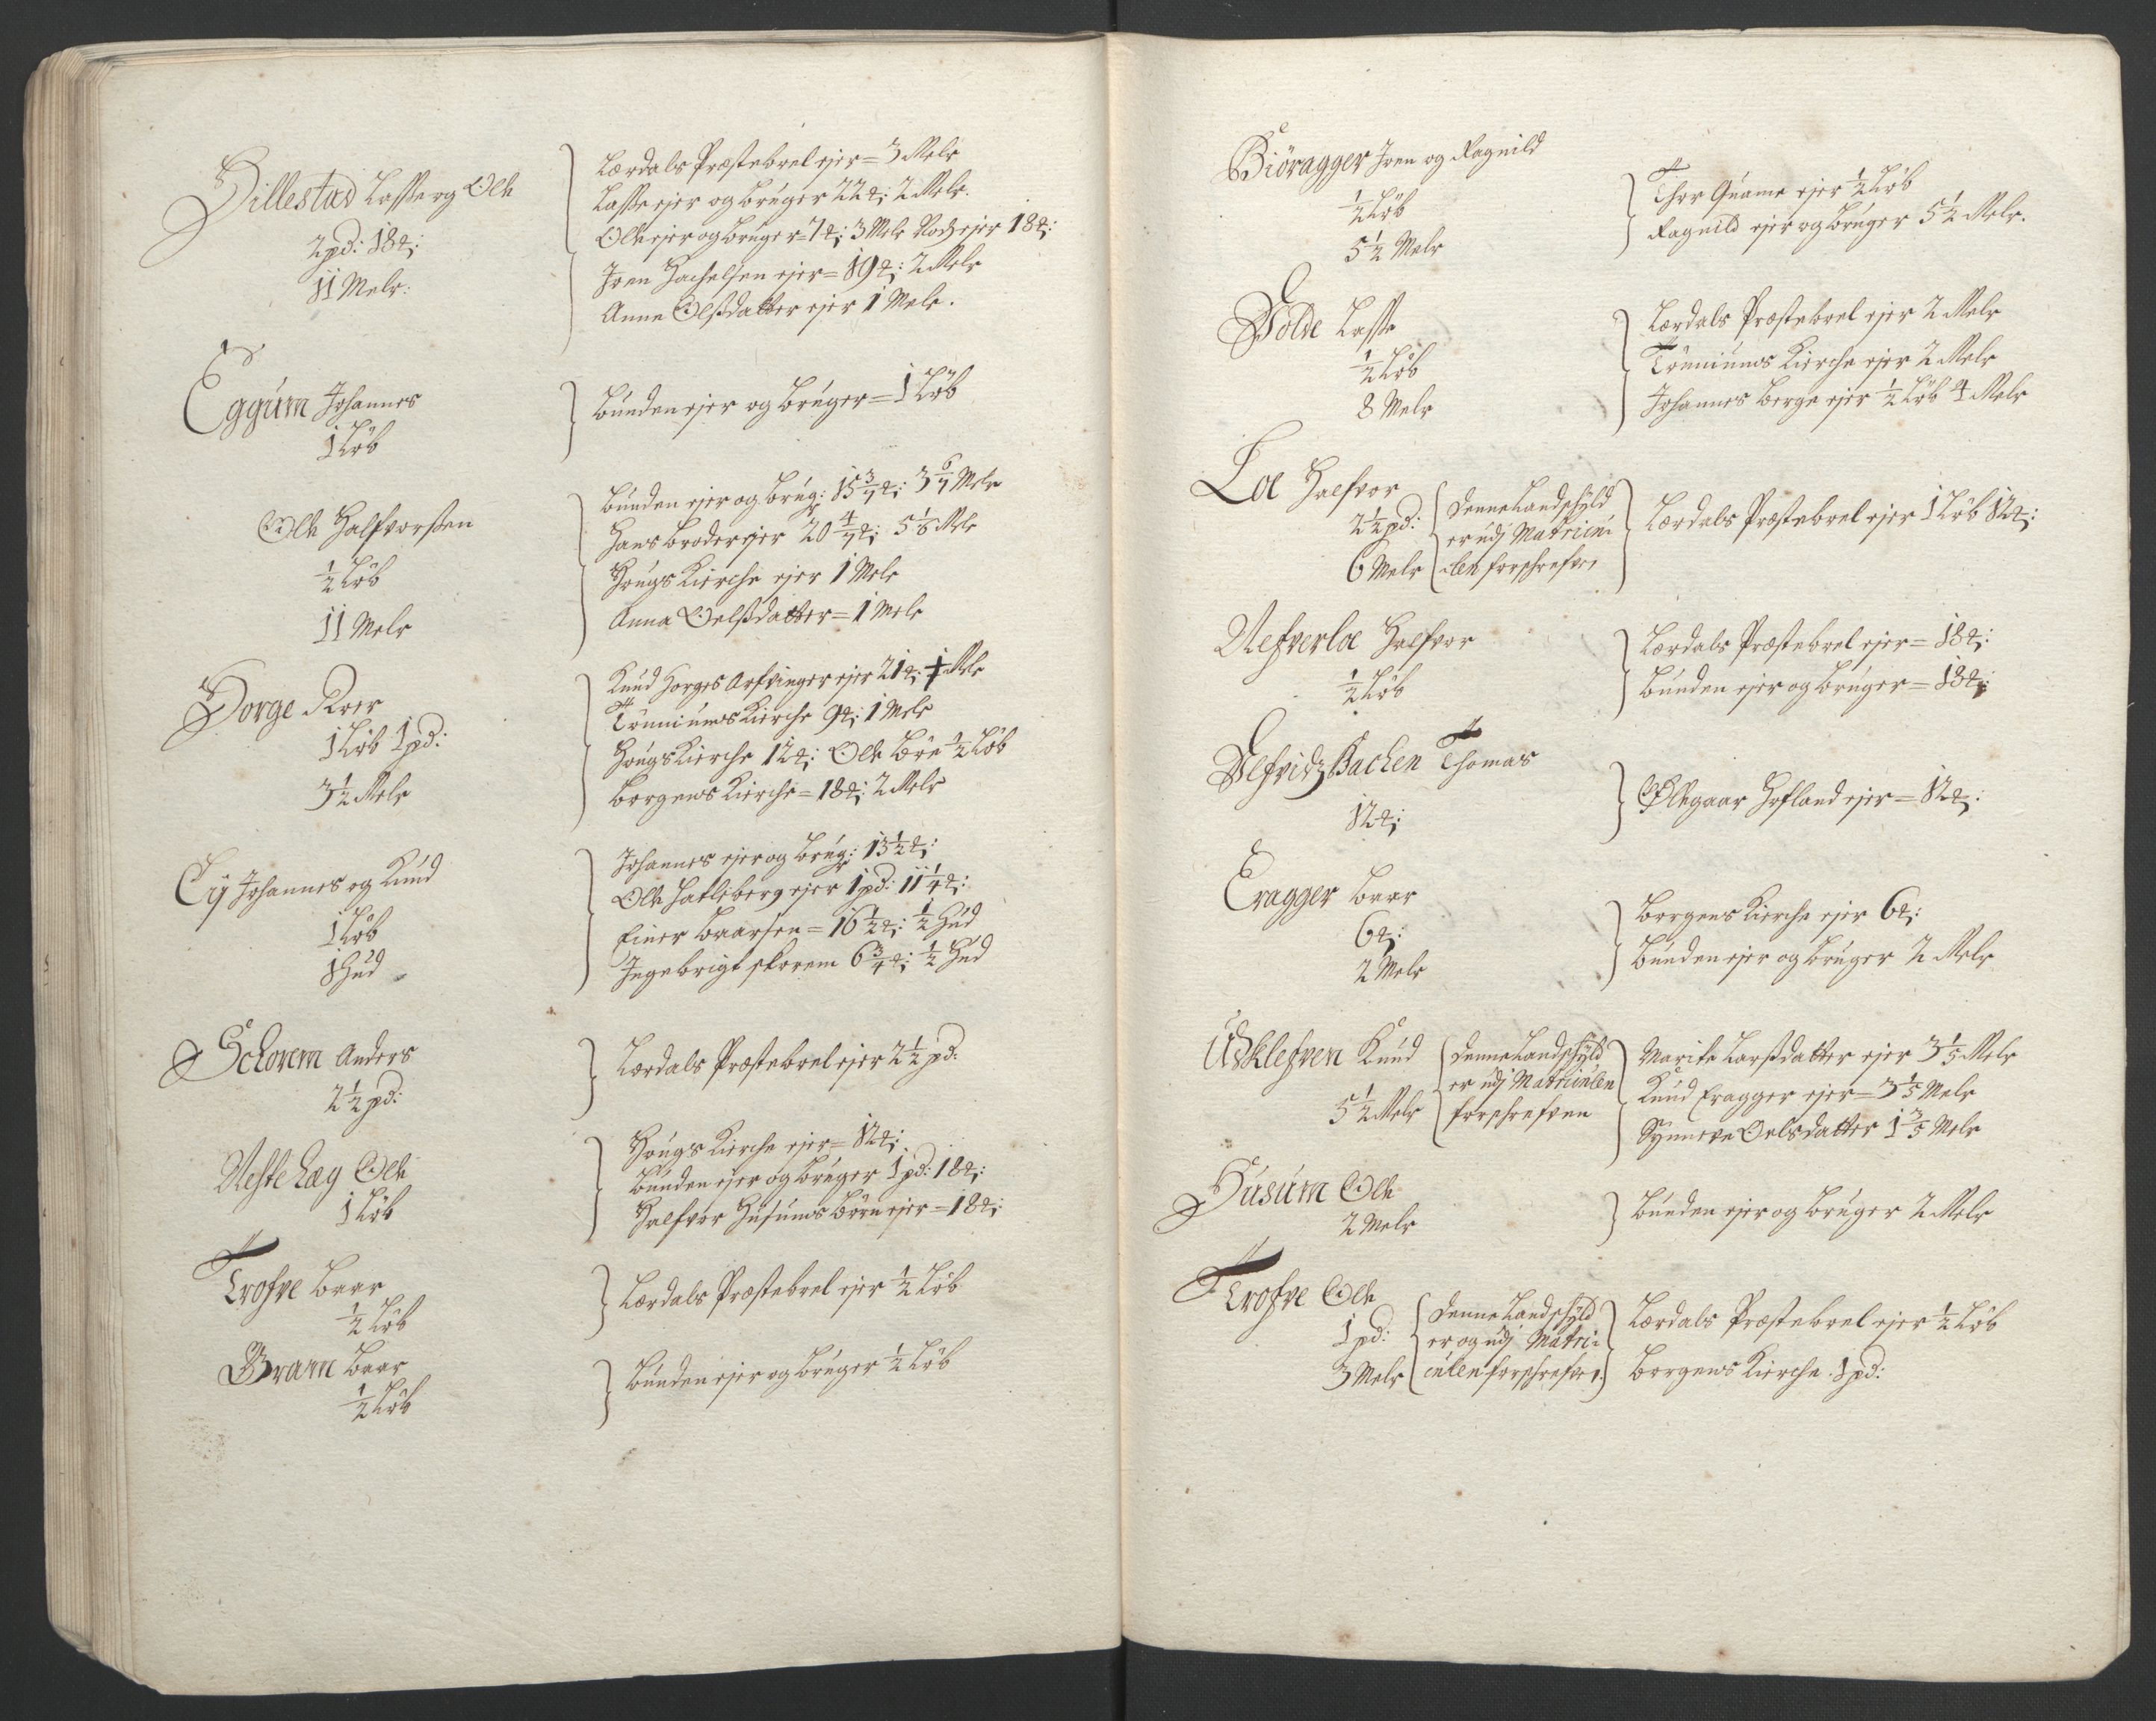 Hillestad Lasse og Ole
2 pd: 18 ℔:
11 Mele:
Lærdals Præsteboel ejer = 3 Mele
Lasse ejer og bruger 22 ℔: 2 Mele.
Ole ejer og bruger = 7 ℔: 3 Mele Rodz ejer 18 ℔:
Iven Hachelsen ejer = 19 ℔: 2 Mele
Anne Olsdatter ejer 1 Mele.
Eggum Johannes
1 Løb
Bunden ejer og bruger = 1 Løb
Ole Halfvorsen
1/2 Løb
11 Mele
Bunden ejer og brug: 15 3/7 ℔: 3 6/7 Mele
Hans broder ejer 20 4/7 ℔: 5 1/8 Mele
Hougs Kierche ejer 1 Mele
Anna Oelsdatter = 1 Mele
Horge Iver
1 Løb 1 pd:
3 1/2 Mele
Knud Horges Arfvinger ejer 21 ℔: Mele
Tønniums Kierche 9 ℔: 1 Mele
Hougs Kierche 12 ℔: Ole Løe 1/2 Løb
Borgens Kierche = 18 ℔: 2 Mele
Lij Johannes og Knud
1 Løb
1 Hud
Johannes ejer og brug: 13 1/2 ℔:
Ole Hatleberg ejer 1 pd: 11 1/4 ℔:
Einer Baarsen = 16 1/2 ℔: 1/2 Hud
Ingebrigt skorem 6 3/4 ℔: 1/2 Hud
Schorem Anders
2 1/2 pd:
Lærdals Præsteboel ejer 2 1/2 pd:
Neste Læg Ole
1 Løb
Hougs Kierche ejer = 12 ℔:
Bunden ejer og bruger 1 pd: 18 ℔:
Halfvor Husums børn ejer = 18 ℔:
Trofve Baar
1/2 Løb
Lærdals Præsteboel ejer 1/2 Løb
Gram Baar
1/2 Løb
Bunden ejer og bruger 1/2 Løb
Biøragger Iven og Ragnild
1/2 Løb
5 1/2 Mele
Thor Quame ejer 1/2 Løb
Ragnild ejer og bruger 5 1/2 Mele.
Volde Lasse
1/2 Løb
8 Mele
Lærdals Præsteboel ejer 2 Mele
Tønniums Kierche ejer 2 Mele
Johannes Berge ejer 1/2 Løb 4 Mele
Loe Halfvor
2 1/2 pd:
6 Mele
Denne Landschyld
er udj Matricu:
:len forschrefven
Lærdals Præsteboel ejer 1 Løb 12 ℔:
Nefverloe Halfvor
1/2 Løb
Lærdals Præsteboel ejer = 18 ℔:
Bunden ejer og bruger = 18 ℔:
Bachen Thomas
12 ℔:
Ølegaar Hofland ejer = 12 ℔:
Eragger Baar
6 ℔:
2 Mele
Borgens Kierche ejer 6 ℔:
Bunden ejer og bruger 2 Mele
Udklefven Knud
5 1/2 Mele
Denne Landschyld
er udj Matriculen
forschrefven
Marite Larsdatter ejer 3 1/5 Mele
Knud Eragger ejer = 3 1/5 Mele
Synneve Oelsdatter 1 3/5 Mele
Husum Ole
2 Mele
Bunden ejer og bruger 2 Mele
Trofve Ole
1 pd:
3 Mele
Denne Landschyld
er og udj Matri:
culen forschrefven.
Lærdals Præsteboel ejer 1/2 Løb
Borgens Kierche 1 pd: